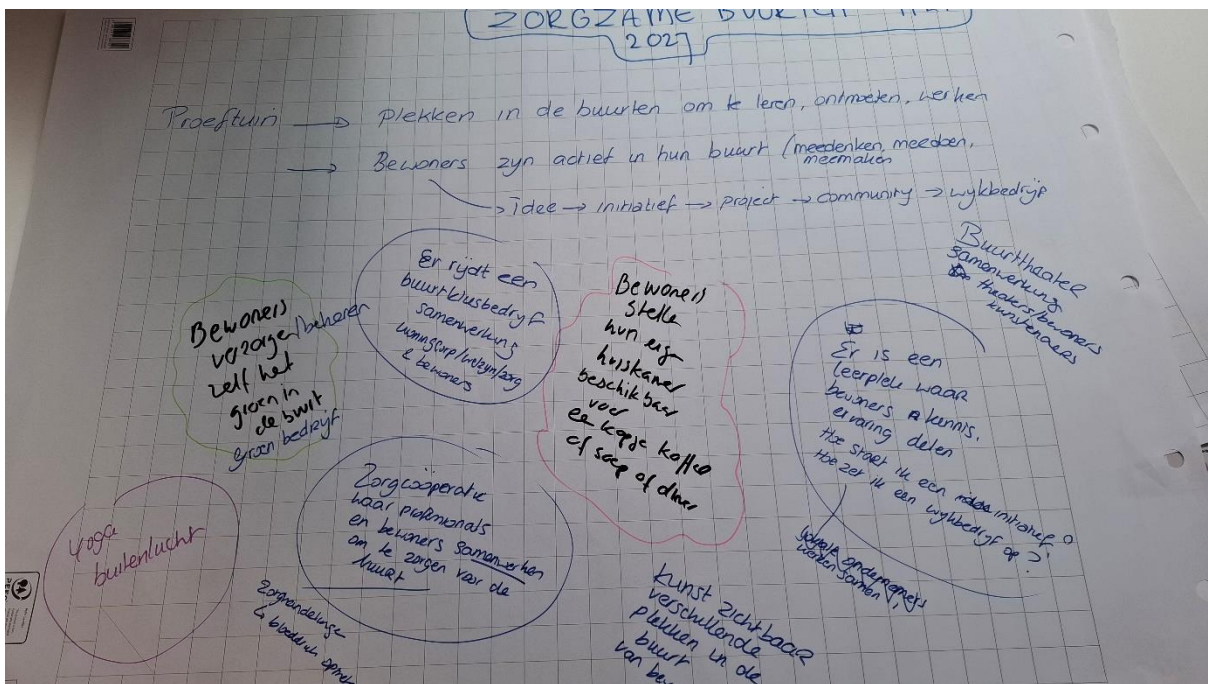 ZORGZAME BUURTEN
2027
Proeftuin → plekken in de buurten om te leren, ontmoeten, werken
→ Bewoners zijn actief in hun buurt (meedenken, meedoen,
meemaken
→ idee → initiatief → project → community → wijkbedrijf
Er rijdt een
buurtklusbedrijf
samenwerking
woningcorp/welzijn/zorg
& bewoners
Bewoners
verzorgen/beheren
zelf het
groen in
de buurt
groen bedrijf
Bewoners
stelle
hun eig
huiskamer
beschikbaar
voor
een kopje koffie
of soep of diner
Buurttheater
samenwerking
theaters/bewoners
kunstenaars
Er is een
leerplek waar
bewoners kennis,
ervaring delen
Hoe start ik een initiatief?
Hoe zet ik een wijkbedrijf op?
ondernemers
werken samen
Yoga
buitenlucht
Zorgcoöperatie
waar professionals
en bewoners samenwerken
om te zorgen voor de
buurt
Zorghandelinge
↳ bloeddruk
Kunst zichtbaar
verschillende
plekken in de
buurt
van